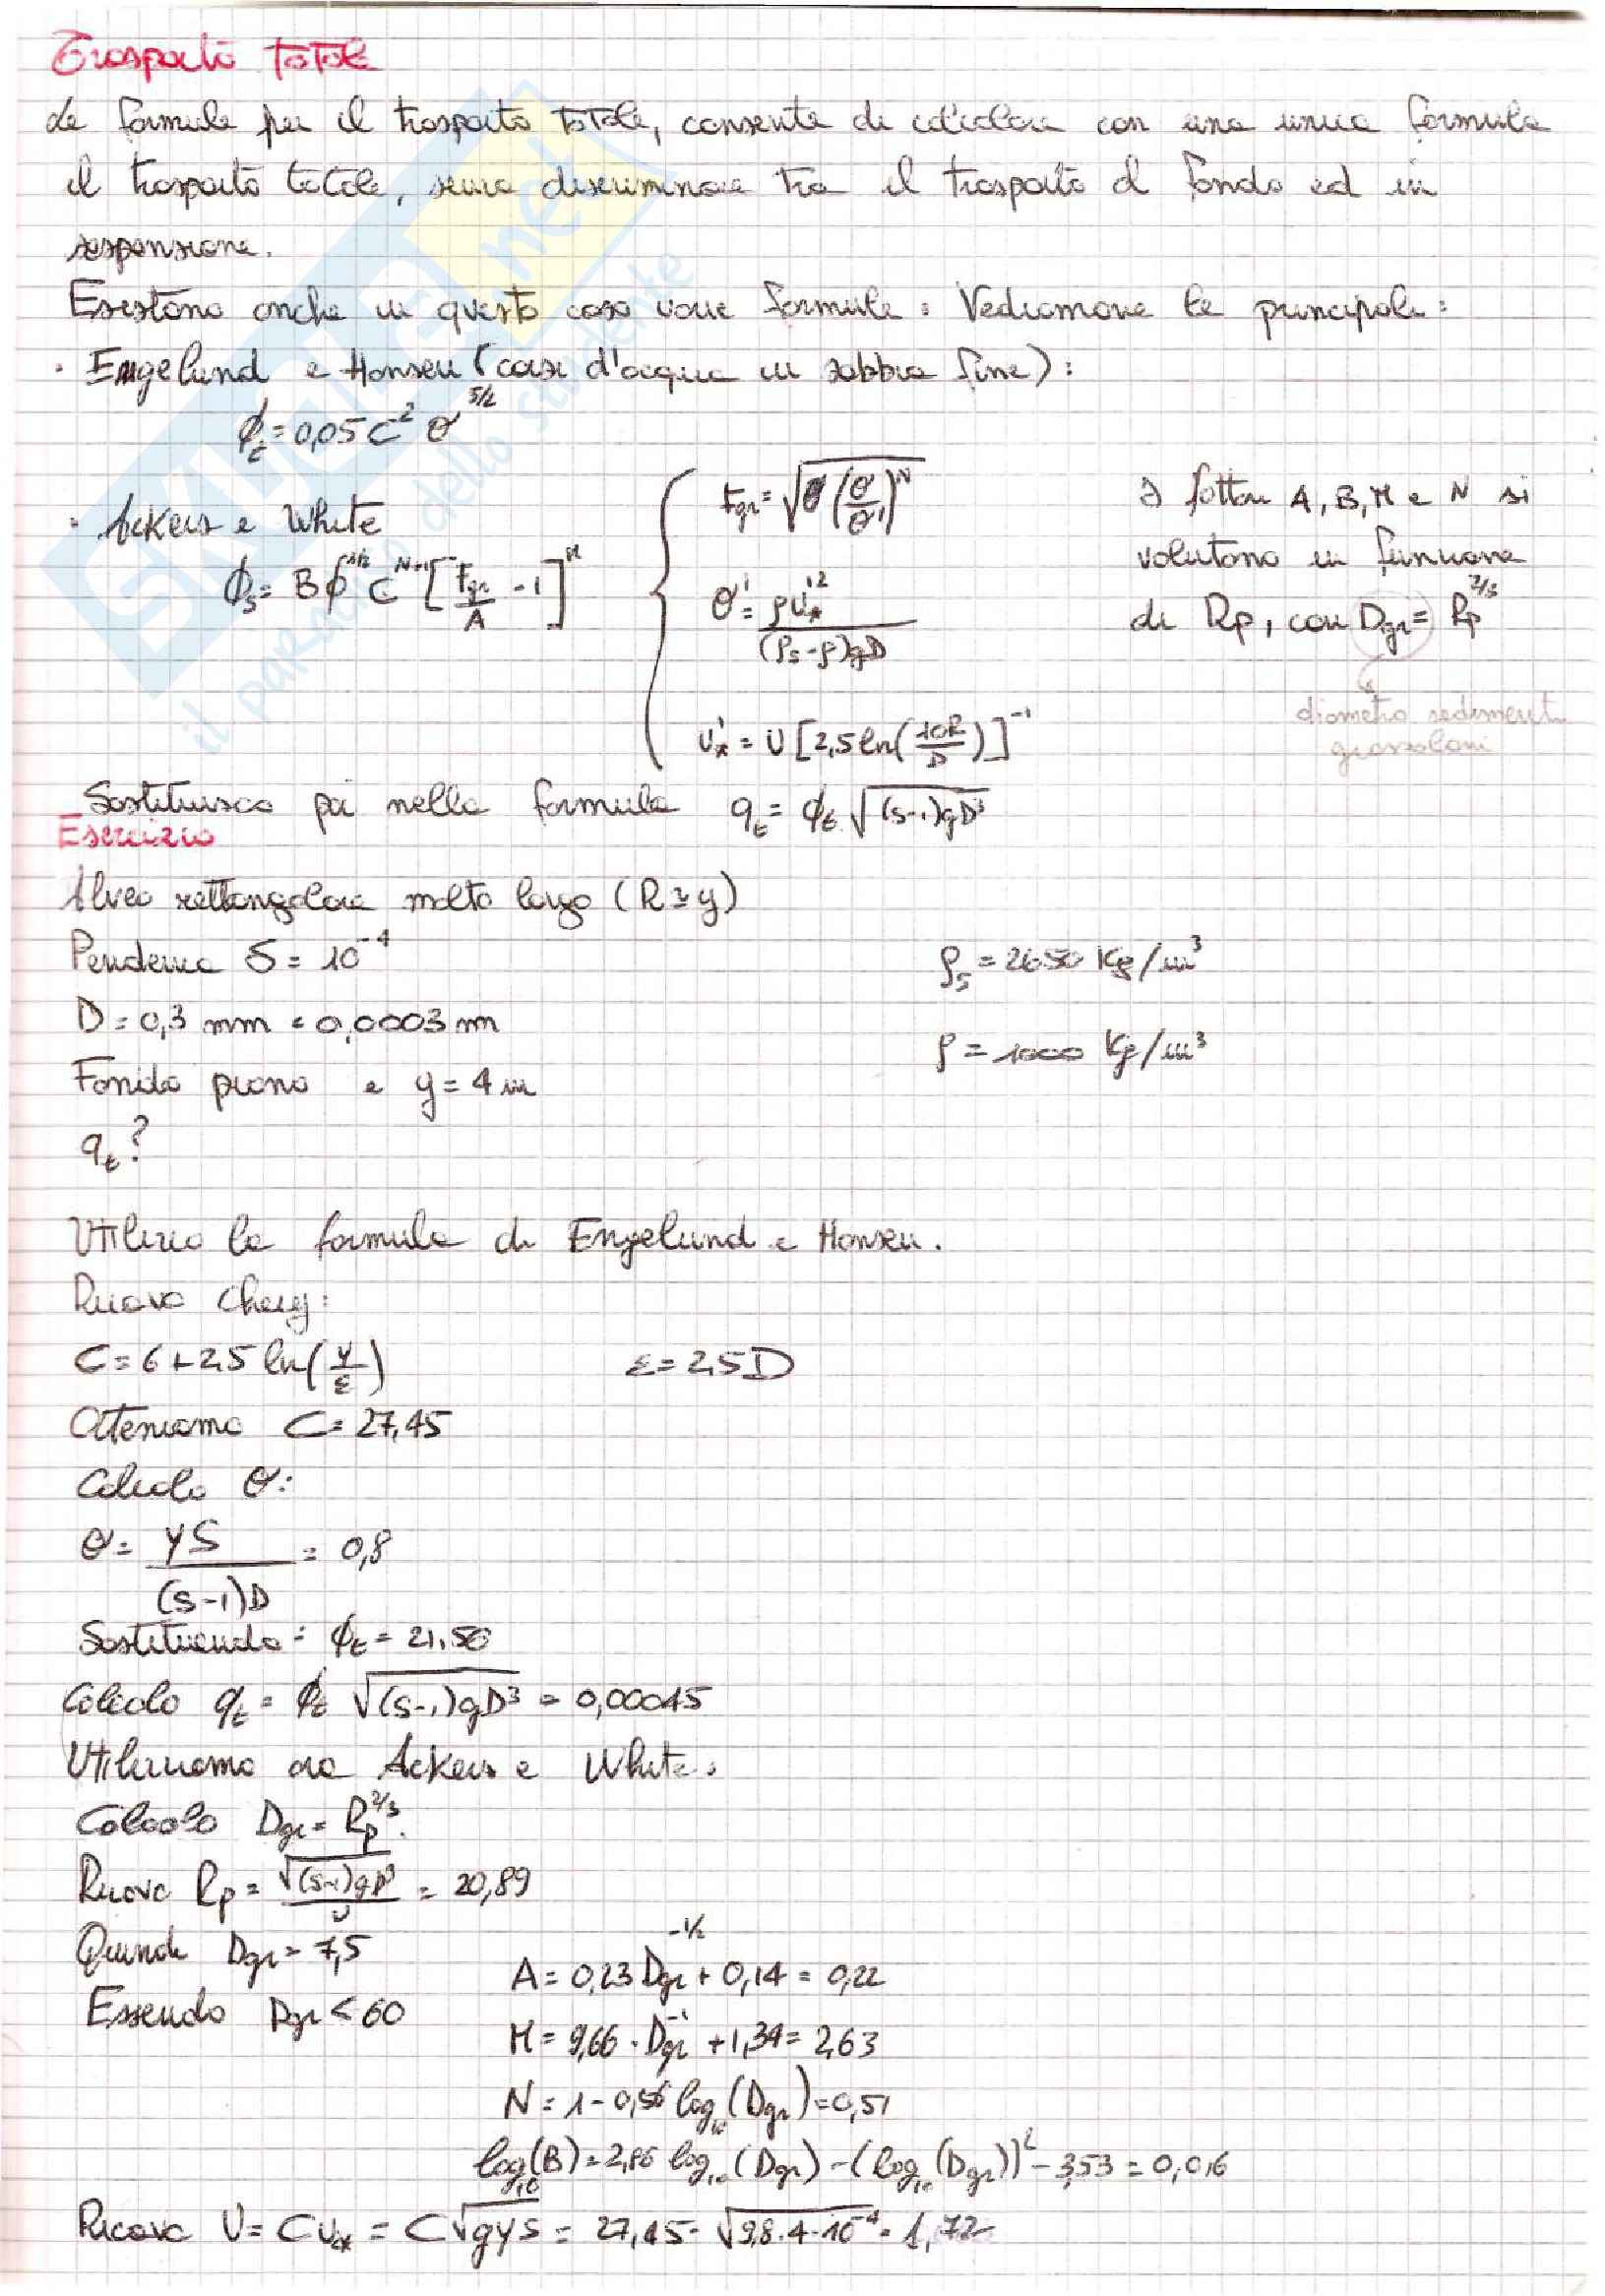 Trasporto totale
Le formule per il trasporto totale, consente di calcolare con una unica formula
il trasporto totale, senza discriminare tra il trasporto al fondo ed in
sospensione.
Esistono anche in questo caso varie formule. Vediamone le principali:
· Engelund e Hansen (corsi d'acqua in sabbia fine):
ϕt = 0,05 C² θ^5/2
· Ackers e White
ϕs = B ϕ^1/2 C^N-1 [Fgr/A - 1]^M
Fgr = √(θ (θ/θ')^N)
θ' = ρu*'²/((ρs-ρ)gD)
u*' = U [2,5 ln(10R/D)]^-1
I fattori A, B, M e N si
valutano in funzione
di Rp, con Dgr = Rp^2/3
diametro sedimenti
grossolani
Sostituisco poi nella formula qt = ϕt √((s-1)gD³)
Esercizio
Alveo rettangolare molto largo (R≃y)
Pendenza S = 10^-4
ρs = 2650 Kg/m³
D = 0,3 mm = 0,0003 m
ρ = 1000 Kg/m³
Fondo piano e y = 4 m
qt?
Utilizzo la formula di Engelund e Hansen.
Ricavo Chezy:
C = 6 + 2,5 ln(y/ε) ε = 2,5D
Otteniamo C = 27,45
Calcolo θ:
θ = yS/((s-1)D) = 0,8
Sostituendo: ϕt = 21,50
Calcolo qt = ϕt √((s-1)gD³) = 0,00045
Utilizziamo ora Ackers e White.
Calcolo Dgr = Rp^2/3.
Ricavo Rp = √((s-1)gD³)/ν = 20,89
Quindi Dgr = 7,5
Essendo Dgr < 60
A = 0,23 Dgr^-1/2 + 0,14 = 0,22
M = 9,66 · Dgr^-1 + 1,34 = 2,63
N = 1 - 0,56 log10(Dgr) = 0,51
log10(B) = 2,86 log10(Dgr) - (log10(Dgr))² - 3,53 = 0,016
Ricavo U = C u* = C√gyS = 27,45 · √9,8·4·10^-4 = 1,72
SKUOLA.net
il paradiso dello studente